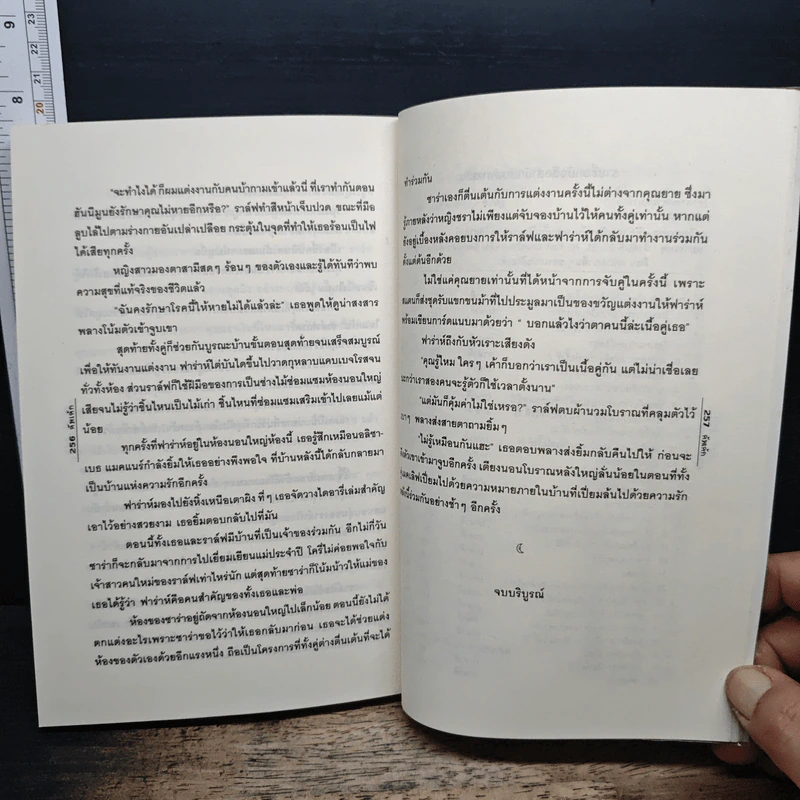 "จะทำไงได้ ก็ผมแต่งงานกับคนบ้ากามเข้าแล้วนี่ ที่เราทำกันตอน
ฮันนีมูนยังรักษาคุณไม่หายอีกหรือ?" ราล์ฟทำสีหน้าเจ็บปวด ขณะที่มือ
ลูบไล้ไปตามร่างกายอันเปล่าเปลือย กระตุ้นในจุดที่ทำให้เธอร้อนเป็นไฟ
ได้เสียทุกครั้ง
หญิงสาวมองตาสามีสดๆ ร้อนๆ ของตัวเองและรู้ได้ทันทีว่าพบ
ความสุขที่แท้จริงของชีวิตแล้ว
"ฉันคงรักษาโรคนี้ให้หายไม่ได้แล้วล่ะ" เธอพูดให้ดูน่าสงสาร
พลางโน้มตัวเข้าจูบเขา
สุดท้ายทั้งคู่ก็ช่วยกันบูรณะบ้านขั้นตอนสุดท้ายจนเสร็จสมบูรณ์
เพื่อให้ทันงานแต่งงาน ฟาร่าห์ไต่บันไดขึ้นไปวาดกุหลาบแคบเบจโรสจน
ทั่วทั้งห้อง ส่วนราล์ฟก็ใช้ฝีมือของการเป็นช่างไม้ซ่อมแซมห้องนอนใหญ่
เสียจนไม่รู้ว่าชิ้นไหนเป็นไม้เก่า ชิ้นไหนที่ซ่อมแซมเสริมเข้าไปเลยแม้แต่
น้อย
ทุกครั้งที่ฟาร่าห์อยู่ในห้องนอนใหญ่ห้องนี้ เธอรู้สึกเหมือนอลิซา-
เบธ แมคแนร์กำลังยิ้มให้เธออย่างพึงพอใจ ที่บ้านหลังนี้ได้กลับกลายมา
เป็นบ้านแห่งความรักอีกครั้ง
ฟาร่าห์มองไปยังหิ้งเหนือเตาผิง ที่ๆ เธอจัดวางไดอารี่เล่มสำคัญ
เอาไว้อย่างสวยงาม เธอยิ้มตอบกลับไปที่มัน
ตอนนี้ทั้งเธอและราล์ฟมีบ้านที่เป็นเจ้าของร่วมกัน อีกไม่กี่วัน
ซาร่าก็จะกลับมาจากการไปเยี่ยมเยียนแม่ประจำปี โครี่ไม่ค่อยพอใจกับ
เจ้าสาวคนใหม่ของราล์ฟเท่าไหร่นัก แต่สุดท้ายซาร่าก็โน้มน้าวให้แม่ของ
เธอได้รู้ว่า ฟาร่าห์คือคนสำคัญของทั้งเธอและพ่อ
ห้องของซาร่าอยู่ถัดจากห้องนอนใหญ่ไปเล็กน้อย ตอนนี้ยังไม่ได้
ตกแต่งอะไรเพราะซาร่าขอไว้ว่าให้เธอกลับมาก่อน เธอจะได้ช่วยแต่ง
ห้องของตัวเองด้วยอีกแรงหนึ่ง ถือเป็นโครงการที่ทั้งคู่ต่างตื่นเต้นที่จะได้
256 ลัพเล้ก
ทำร่วมกัน
ซาร่าเองก็ตื่นเต้นกับการแต่งงานครั้งนี้ไม่ต่างจากคุณยาย ซึ่งมา
รู้ภายหลังว่าหญิงชราไม่เพียงแต่จับจองบ้านไว้ให้คนทั้งคู่เท่านั้น หากแต่
ยังอยู่เบื้องหลังคอยบงการให้ราล์ฟและฟาร่าห์ได้กลับมาทำงานร่วมกัน
ตั้งแต่ต้นอีกด้วย
ไม่ใช่แค่คุณยายเท่านั้นที่ได้หน้าจากการจับคู่ในครั้งนี้ เพราะ
แดนก็ส่งชุดรับแขกขนม้าที่ไปประมูลมาเป็นของขวัญแต่งงานให้ฟาร่าห์
พร้อมเขียนการ์ดแนบมาด้วยว่า " บอกแล้วไงว่าตาคนนี้ล่ะเนื้อคู่เธอ"
ฟาร่าห์ถึงกับหัวเราะเสียงดัง
"คุณรู้ไหม ใครๆ เค้าก็บอกว่าเราเป็นเนื้อคู่กัน แต่ไม่น่าเชื่อเลย
นะกว่าเราสองคนจะรู้ตัวก็ใช้เวลาตั้งนาน"
"แต่มันก็คุ้มค่าไม่ใช่เหรอ?" ราล์ฟตบผ้านวมโบราณที่คลุมตัวไว้
เบาๆ พลางส่งสายตาถามยิ้มๆ
"ไม่รู้เหมือนกันแฮะ" เธอตอบพลางส่งยิ้มกลับคืนไปให้ ก่อนจะ
เขาเข้ามาจูบอีกครั้ง เตียงนอนโบราณหลังใหญ่ลั่นน้อยในตอนที่ทั้ง
เปี่ยมไปด้วยความหมายภายในบ้านที่เปี่ยมล้นไปด้วยความรัก
ร่วมกันอย่างช้าๆ อีกครั้ง
จบบริบูรณ์
257 ลัพเล้ก
9
8
23
22
21
20